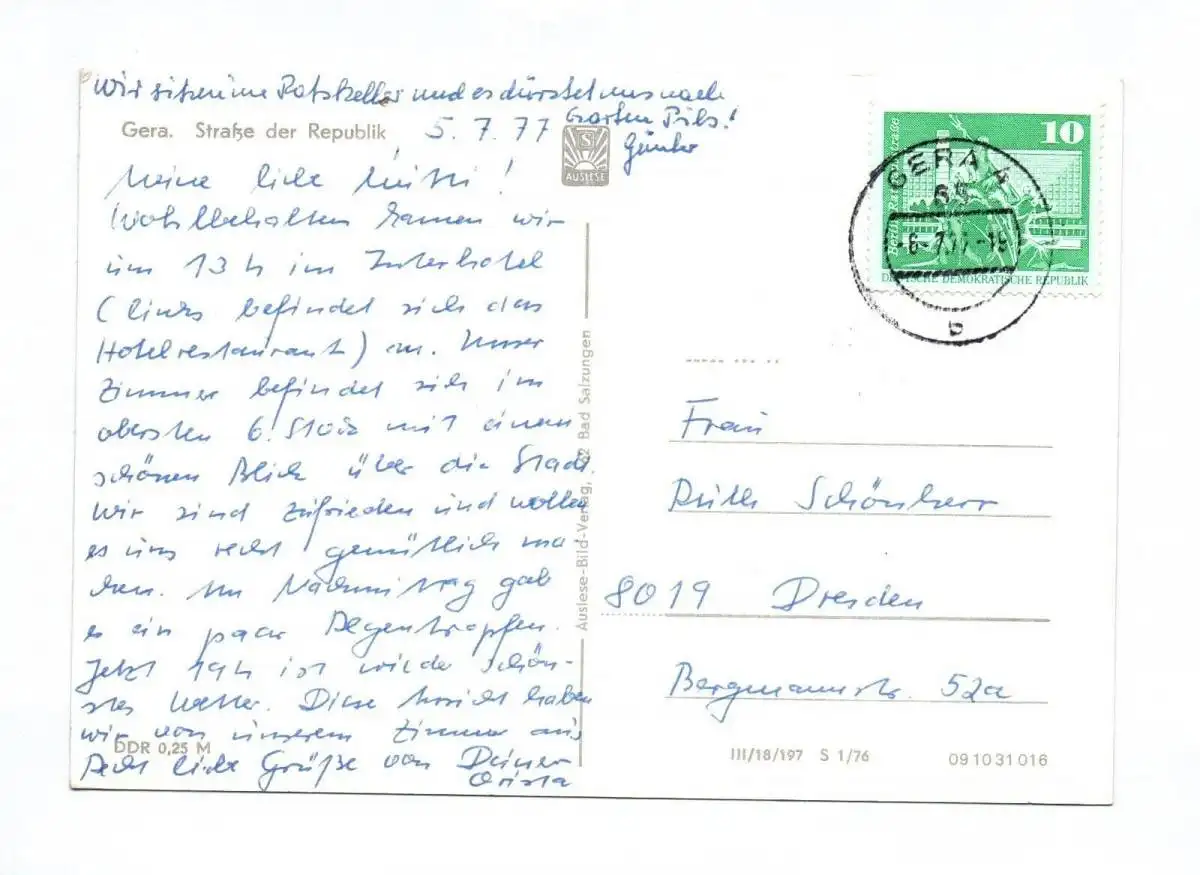 Wir sitzen im Ratskeller und es dürstet uns nach
Garten Pils!
Günter
Gera. Straße der Republik
5.7.77
S
AUSLESE
Meine liebe Mutti!
Wohlbehalten kamen wir
um 13 h im Interhotel
(links befindet sich das
Hotelrestaurant) an. Unser
Zimmer befindet sich im
obersten 6. Stock mit einem
schönen Blick über die Stadt.
Wir sind zufrieden und wollen
es uns recht gemütlich ma-
chen. Am Nachmittag gab
es ein paar Regentropfen.
Jetzt 19h ist wieder schön-
stes Wetter. Diese Ansicht haben
wir von unserem Zimmer aus
DDR 0,25 M
Recht liebe Grüße von Deiner
Christa
Auslese-Bild-Verlag, 62 Bad Salzungen
10
DEUTSCHE DEMOKRATISCHE REPUBLIK
GERA 4
65
-6.-7.77.-19
b
Frau
Ruth Schönherr
8019 Dresden
Bergmannstr. 52a
III/18/197 S 1/76
09 10 31 016